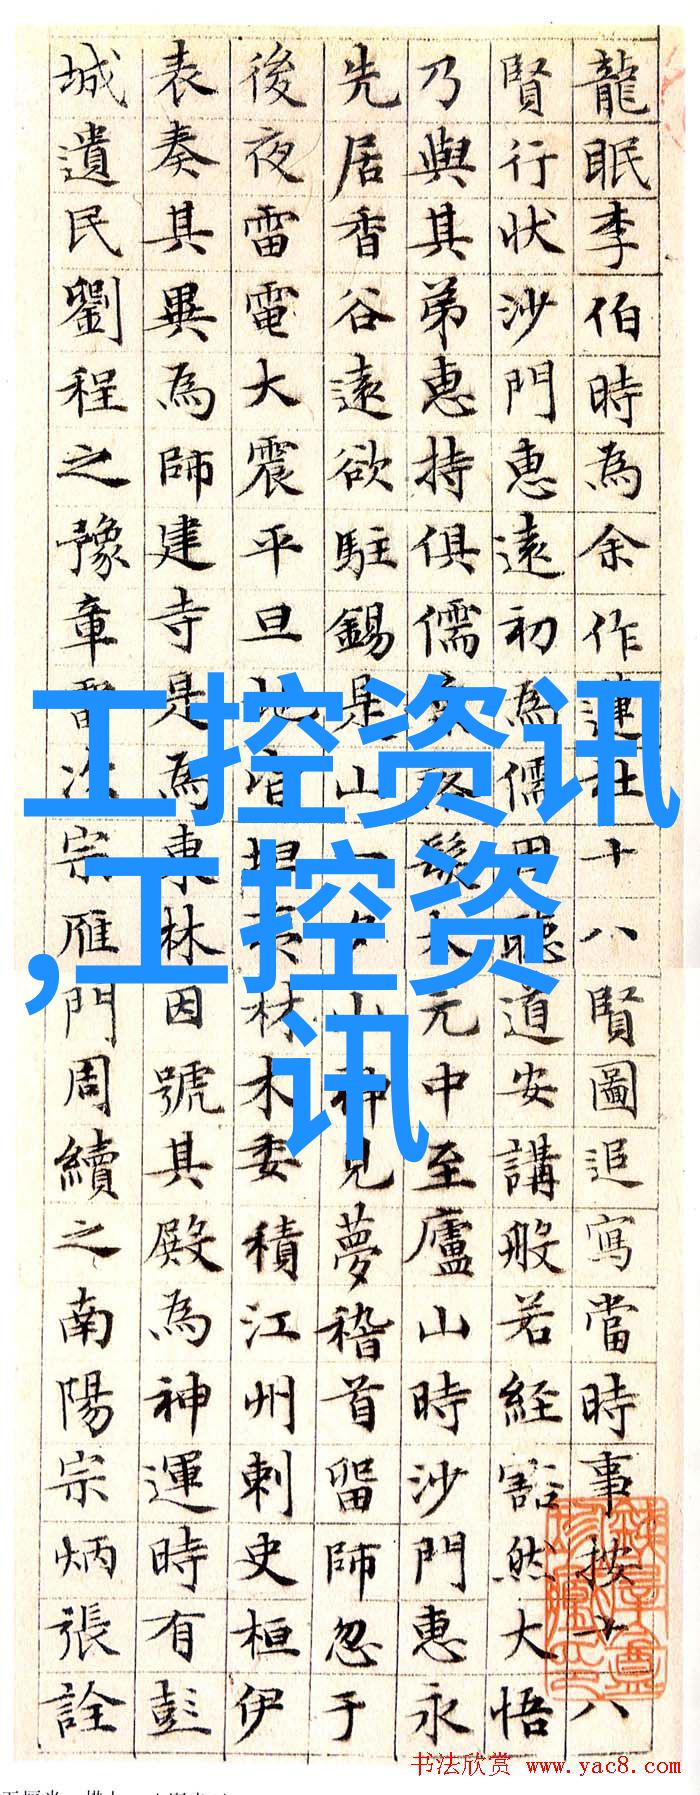 龍眠李伯時為余作蓮社十八賢圖追寫當時事按十八
賢行狀沙門惠遠初為儒因聽道安講般若經豁然大悟
乃與其弟惠持俱儒髮太元中至廬山時沙門惠永
先居香谷遠欲駐錫是山一夕山神見夢稽首留師忽于
後夜雷電大震平旦地皆坦夷材木委積江州刺史桓伊
表奏其異為師建寺是為東林因號其殿為神運時有彭
城遺民劉程之豫章雷次宗雁門周續之南陽宗炳張詮
工控资讯
,工控资
讯
书法欣赏 www.yac8.com